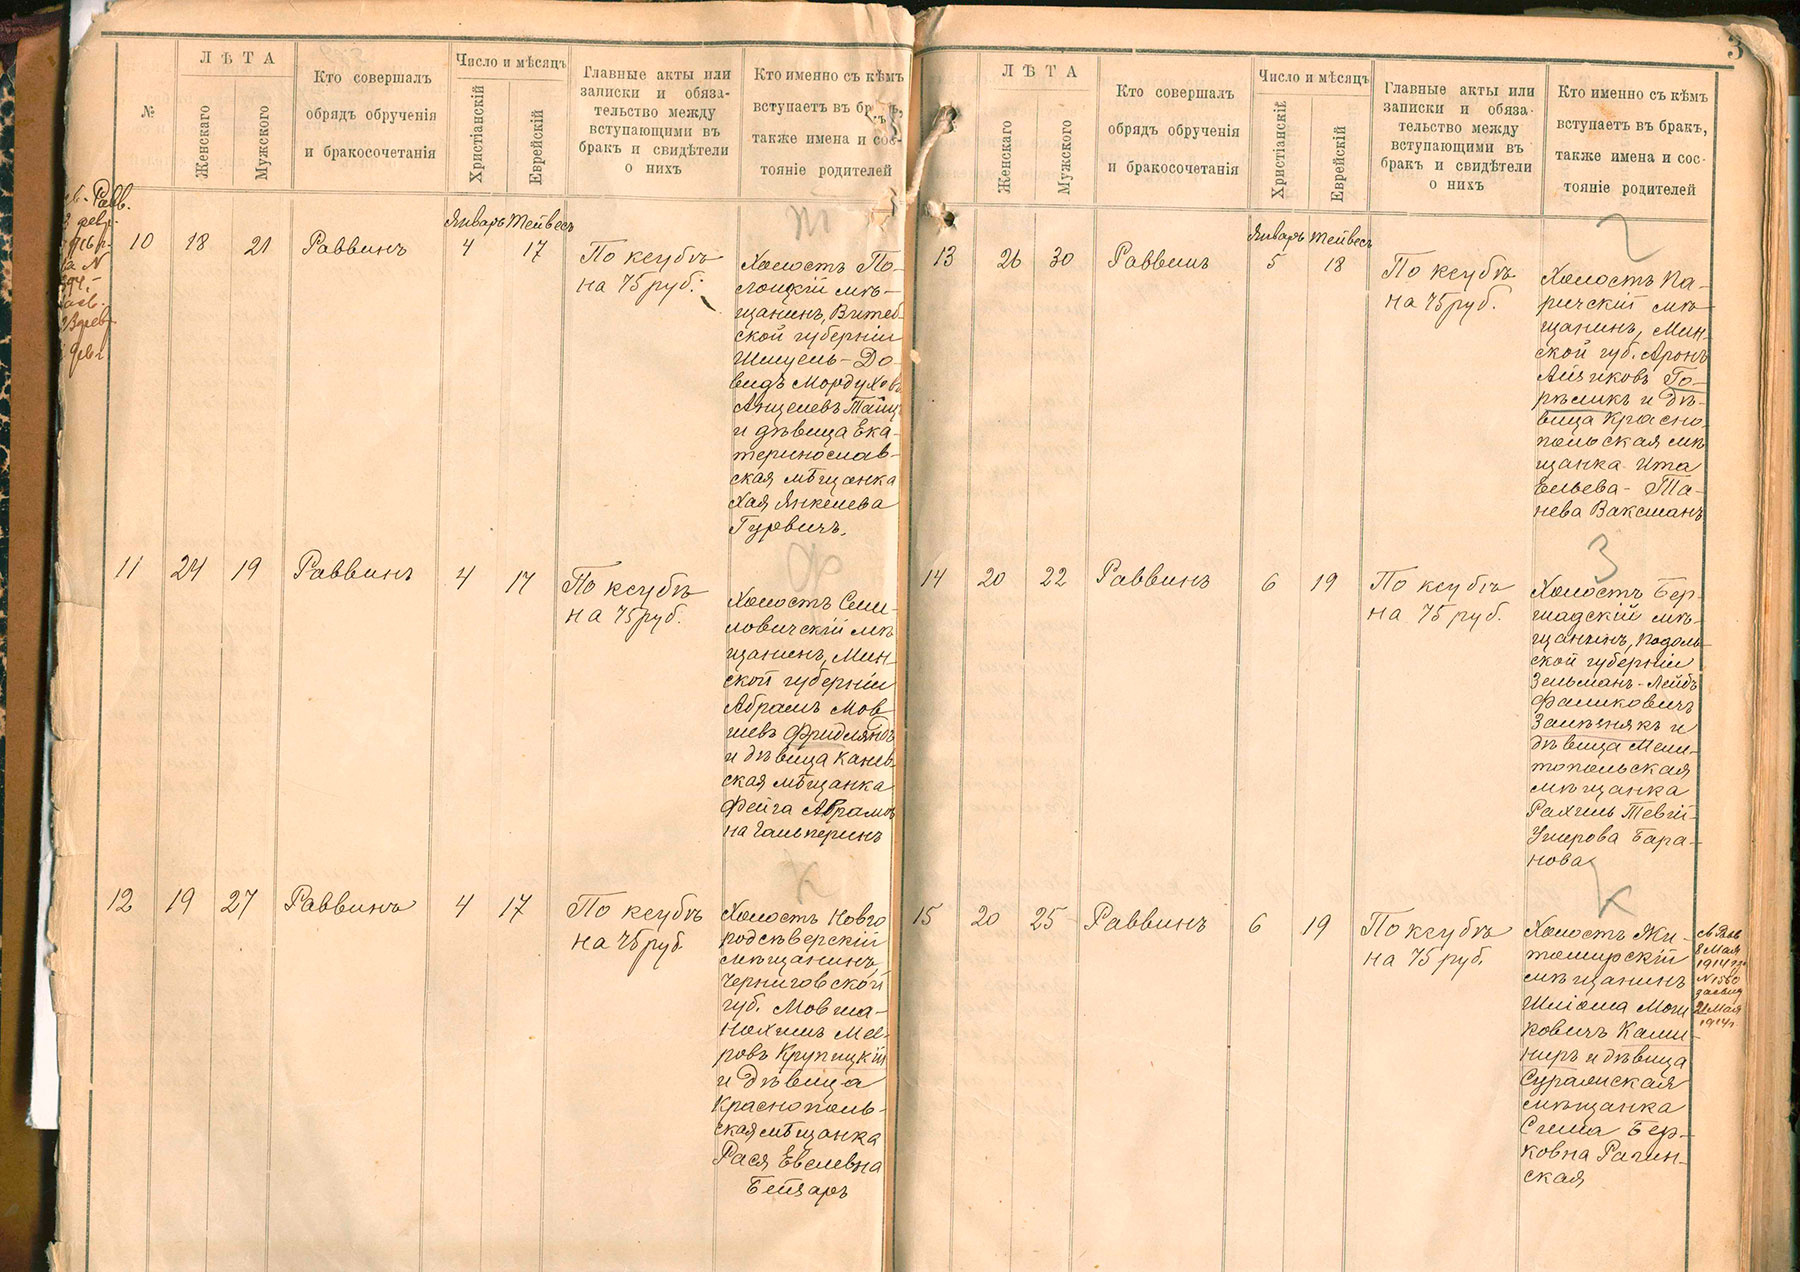 ЛѢТА
Число и мѣсяцъ
№
Женскаго
Мужского
Кто совершалъ
обрядъ обрученія
и бракосочетанія
Христіанскій
Еврейскій
Главные акты или
записки и обяза-
тельство между
вступающими въ
бракъ и свидѣтели
о нихъ
Кто именно съ кѣмъ
вступаетъ въ
также имена и сос-
тояніе родителей
Январь Тейвесъ
10 18 21 Раввинъ 4 17
По ксубѣ
на 75 руб.
Т
Холостъ По-
лоцкій мѣ-
щанинъ, Витеб-
ской губерніи
Шмуель-До-
видъ Мордуховъ
Анцелевъ Тайц
и дѣвица Ека-
теринослав-
ская мѣщанка
Хая Янкелева
Гуревичъ.
11 24 19 Раввинъ 4 17
По ксубѣ
на 75 руб.
Ф
Холостъ Сми-
ловичскій мѣ
щанинъ, Мин-
ской губерніи
Абрамъ Мов
шевъ Фридляндъ
и дѣвица Канев-
ская мѣщанка
Фейга Абрамов
на Гальперинъ
12 19 27 Раввинъ 4 17
По ксубѣ
на 75 руб.
К
Холостъ Новго
родсѣверскій
мѣщанинъ,
Черниговской
губ. Мовша-
Нохимъ Меѣ-
ровъ Крупицкій
и дѣвица
Краснополь-
ская мѣщанка
Рася Евелевна
Бейзаръ
3
ЛѢТА
Число и мѣсяцъ
Женскаго
Мужского
Кто совершалъ
обрядъ обрученія
и бракосочетанія
Христіанскій
Еврейскій
Главные акты или
записки и обяза-
тельство между
вступающими въ
бракъ и свидѣтели
о нихъ
Кто именно съ кѣмъ
вступаетъ въ бракъ,
также имена и сос-
тояніе родителей
Январь Тейвесъ
13 26 30 Раввинъ 5 18
По ксубѣ
на 75 руб.
Г
Холостъ Па-
ричскій мѣ
щанинъ, Мин-
ской губ. Аронъ
Айзиковъ Го-
рѣликъ и дѣ-
вица Красно-
польская мѣ
щанка Ита
Ельева-Та-
нева Ваксманъ
14 20 22 Раввинъ 6 19
По ксубѣ
на 75 руб.
З
Холостъ Бер-
шадскій мѣ-
щанинъ, Подоль-
ской губерніи
Зельманъ-Лейбъ
Фаликовичъ
и
дѣвица Мели-
топольская
мѣщанка
Рахиль Тевій-
Ушерова Бара-
нова
15 20 25 Раввинъ 6 19
По ксубѣ
на 75 руб.
К
Холостъ Жи-
томирскій
мѣщанинъ
Шліома Мош
ковичъ Каш-
ниръ и дѣвица
Суражская
мѣщанка
Сима Бер-
ковна Рагин-
ская
8 Мая
1914 г.
21 Мая
1914 г.